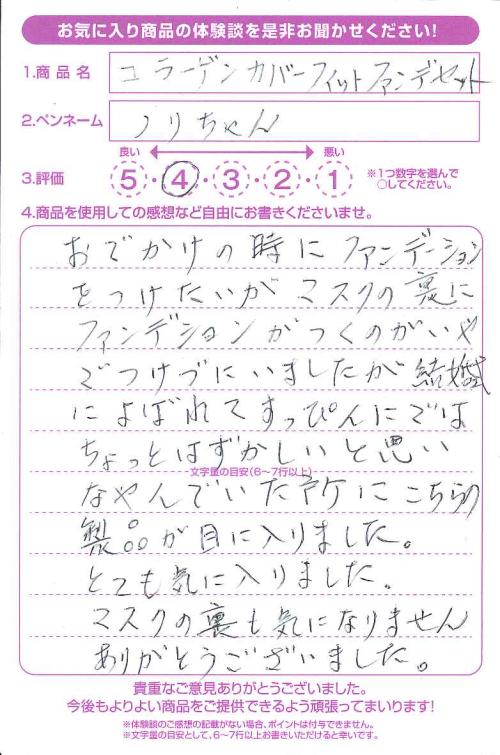 お気に入り商品の体験談を是非お聞かせください!
1.商品名 コラーゲンカバーフィットファンデセット
2.ペンネーム ノリちゃん
良い 悪い
3.評価 5・4・3・2・1 ※1つ数字を選んで
○してください。
4.商品を使用しての感想など自由にお書きくださいませ。
おでかけの時にファンデーション
をつけたいがマスクの裏に
ファンデションがつくのがいや
でつけづにいましたが結婚式
によばれてすっぴんにでは
ちょっとはずかしいと思い
文字量の目安(6~7行以上)
なやんでいた時にこちらの
製品が目に入りました。
とても気に入りました。
マスクの裏も気になりません
ありがとうございました。
貴重なご意見ありがとうございました。
今後もよりよい商品をご提供できるよう頑張ってまいります!
※体験談のご感想の記載がない場合、ポイントは付与できません。
※文字量の目安として、6~7行以上お書きいただけると幸いです。